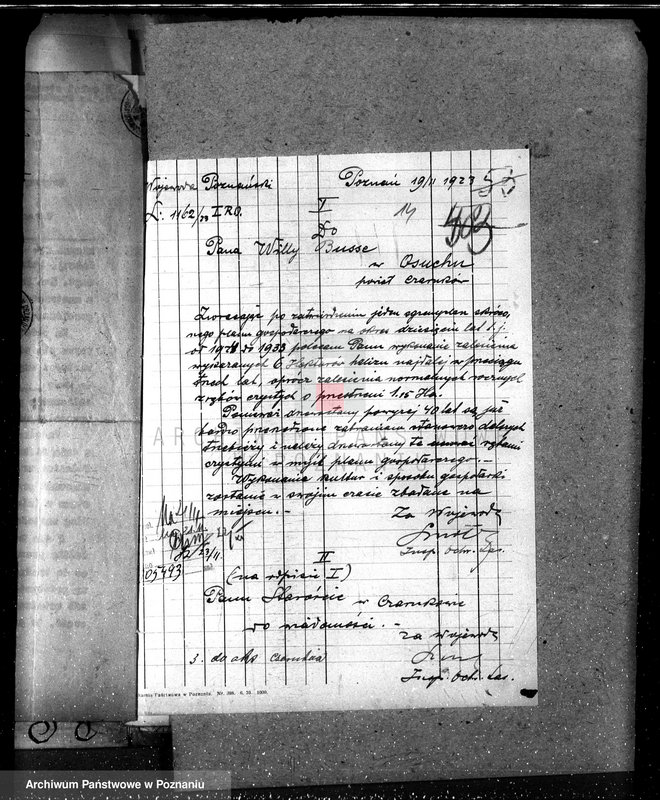 Wojewoda Poznański Poznań 19/II 1923
L. 1162/23 I RO. I 14
Do
Pana Willy Busse
w Osuchu
powiat Czarnków
Zwracając po zatwierdzeniu jeden egzemplarz skróco-
nego planu gospodarczego na okres dziesięciu lat t. j.
od 1923 do 1933 polecam Panu wykonanie zalesienia
wykazanych 6 Hektarów halizn najdalej w przeciągu
trzech lat, oprócz zalesienia normalnych rocznych
zrębów czystych o przestrzeni 1.15 Ha.
Ponieważ drzewostany powyżej 40 lat są już
bardzo przerzedzone zabraniam stanowczo dalszych
trzebieży i należy drzewostany te rębami
czystymi w myśl planu gospodarczego. -
Wykonanie kultur i sposobu gospodarki
zostanie w swoim czasie zbadane na
miejscu. - Za Wojewodę
Insp. Ochr. Las.
23/II.
05493
II
(na odpisie I)
Panu Staroście w Czarnkowie
do wiadomości. -
Za Wojewodę
3. do akt Czarnków
Insp. Ochr. Las.
Państwowa w Poznaniu. Nr. 398. 6. 20. 1000.
Archiwum Państwowe w Poznaniu